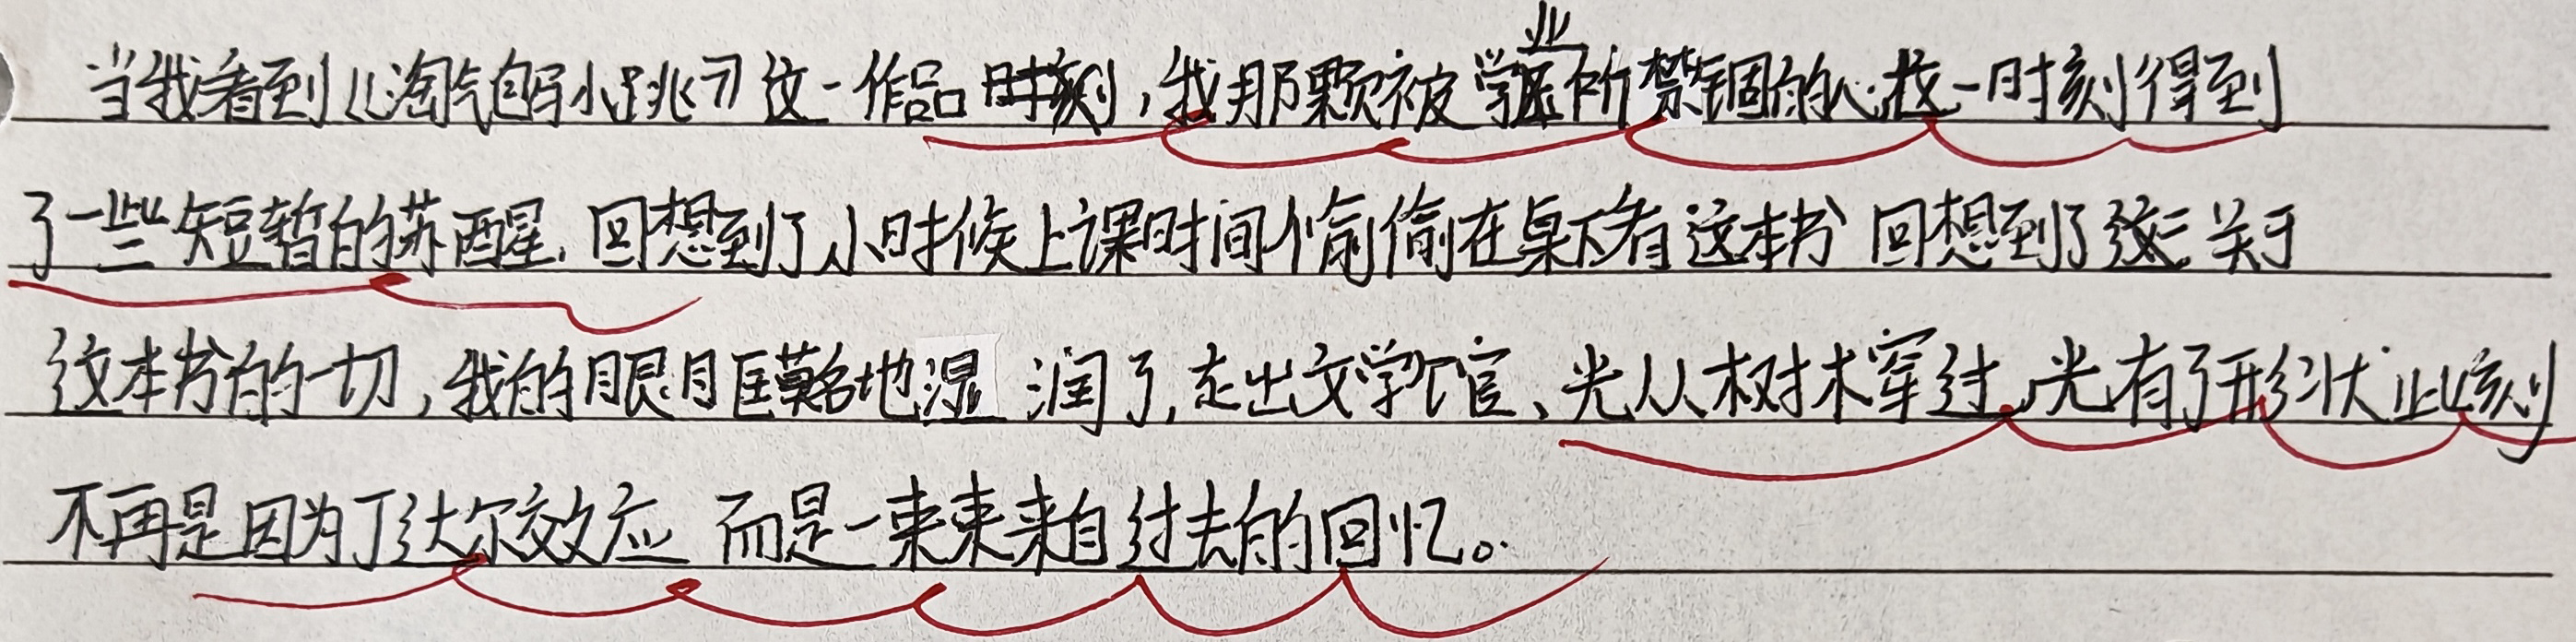 当我看到《淘气的小跳》这一作品时刻,我那颗被学业所禁锢的心,这一时刻得到
了一些短暂的苏醒,回想到了小时候上课时间偷偷在桌下看这本书 回想到了这些关于
这本书的一切,我的眼眶莫名地湿润了,走出文学馆、光从树木穿过,光有了形状 此刻
不再是因为丁达尔效应 而是一束束来自过去的回忆。